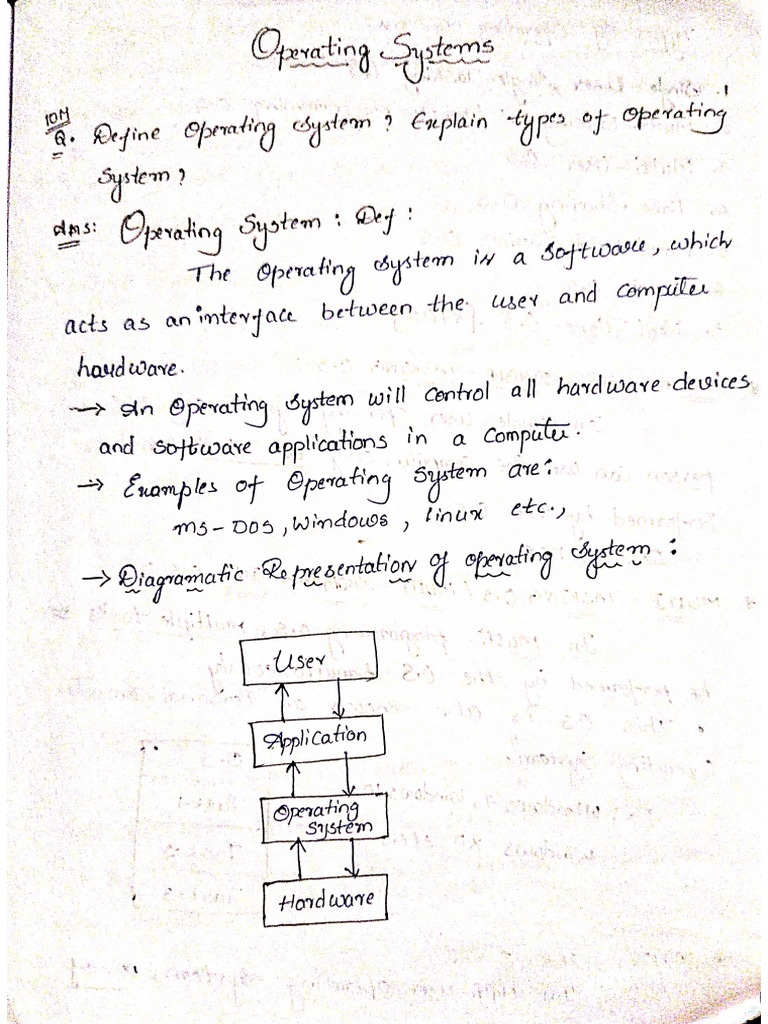 Operating Systems
10M
Q. Define Operating System? Explain types of Operating
System?
Ans: Operating System: Def:
The Operating System is a Software, which
acts as an interface between the user and Computer
hardware.
→ An Operating System will Control all hardware devices
and Software applications in a Computer.
→ Examples of Operating System are:
MS-DOS, Windows, Linux etc.,
→ Diagramatic Representation Of Operating System:
User
Application
Operating
System
Hardware